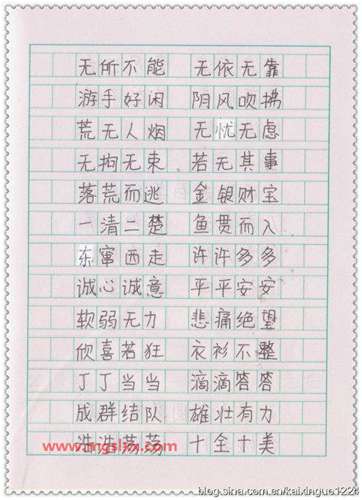 无所不能 无依无靠
游手好闲 阴风吹拂
荒无人烟 无忧无虑
无拘无束 若无其事
落荒而逃 金银财宝
一清二楚 鱼贯而入
东窜西走 许许多多
诚心诚意 平平安安
软弱无力 悲痛绝望
欣喜若狂 衣衫不整
丁丁当当 滴滴答答
成群结队 雄壮有力
浩浩荡荡 十全十美
blog.sina.com.cn/kaixingue122